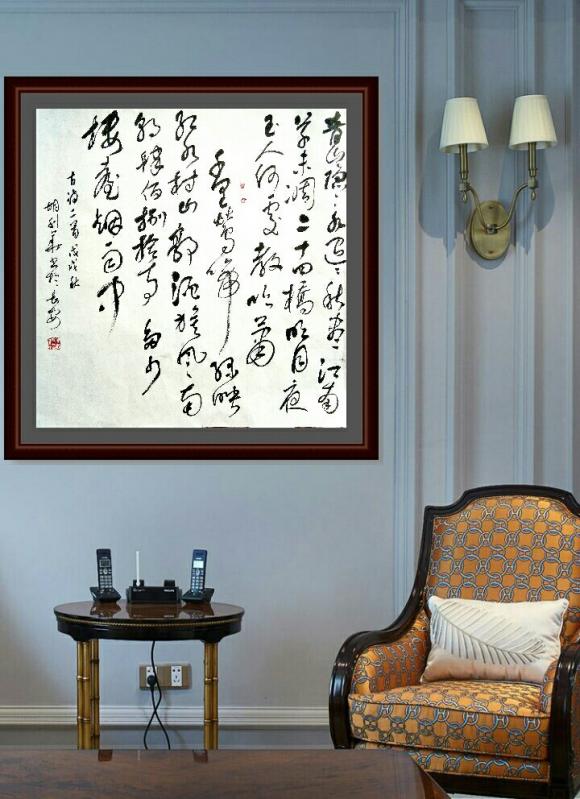 青山隐〻水迢〻秋尽江南
草未凋二十四橋明月夜
玉人何处教吹箫
千里莺啼绿映
红水村山郭酒旗风南
朝肆佰捌拾寺多少
楼臺烟雨中
古诗二首戊戌秋
胡利华书於长安